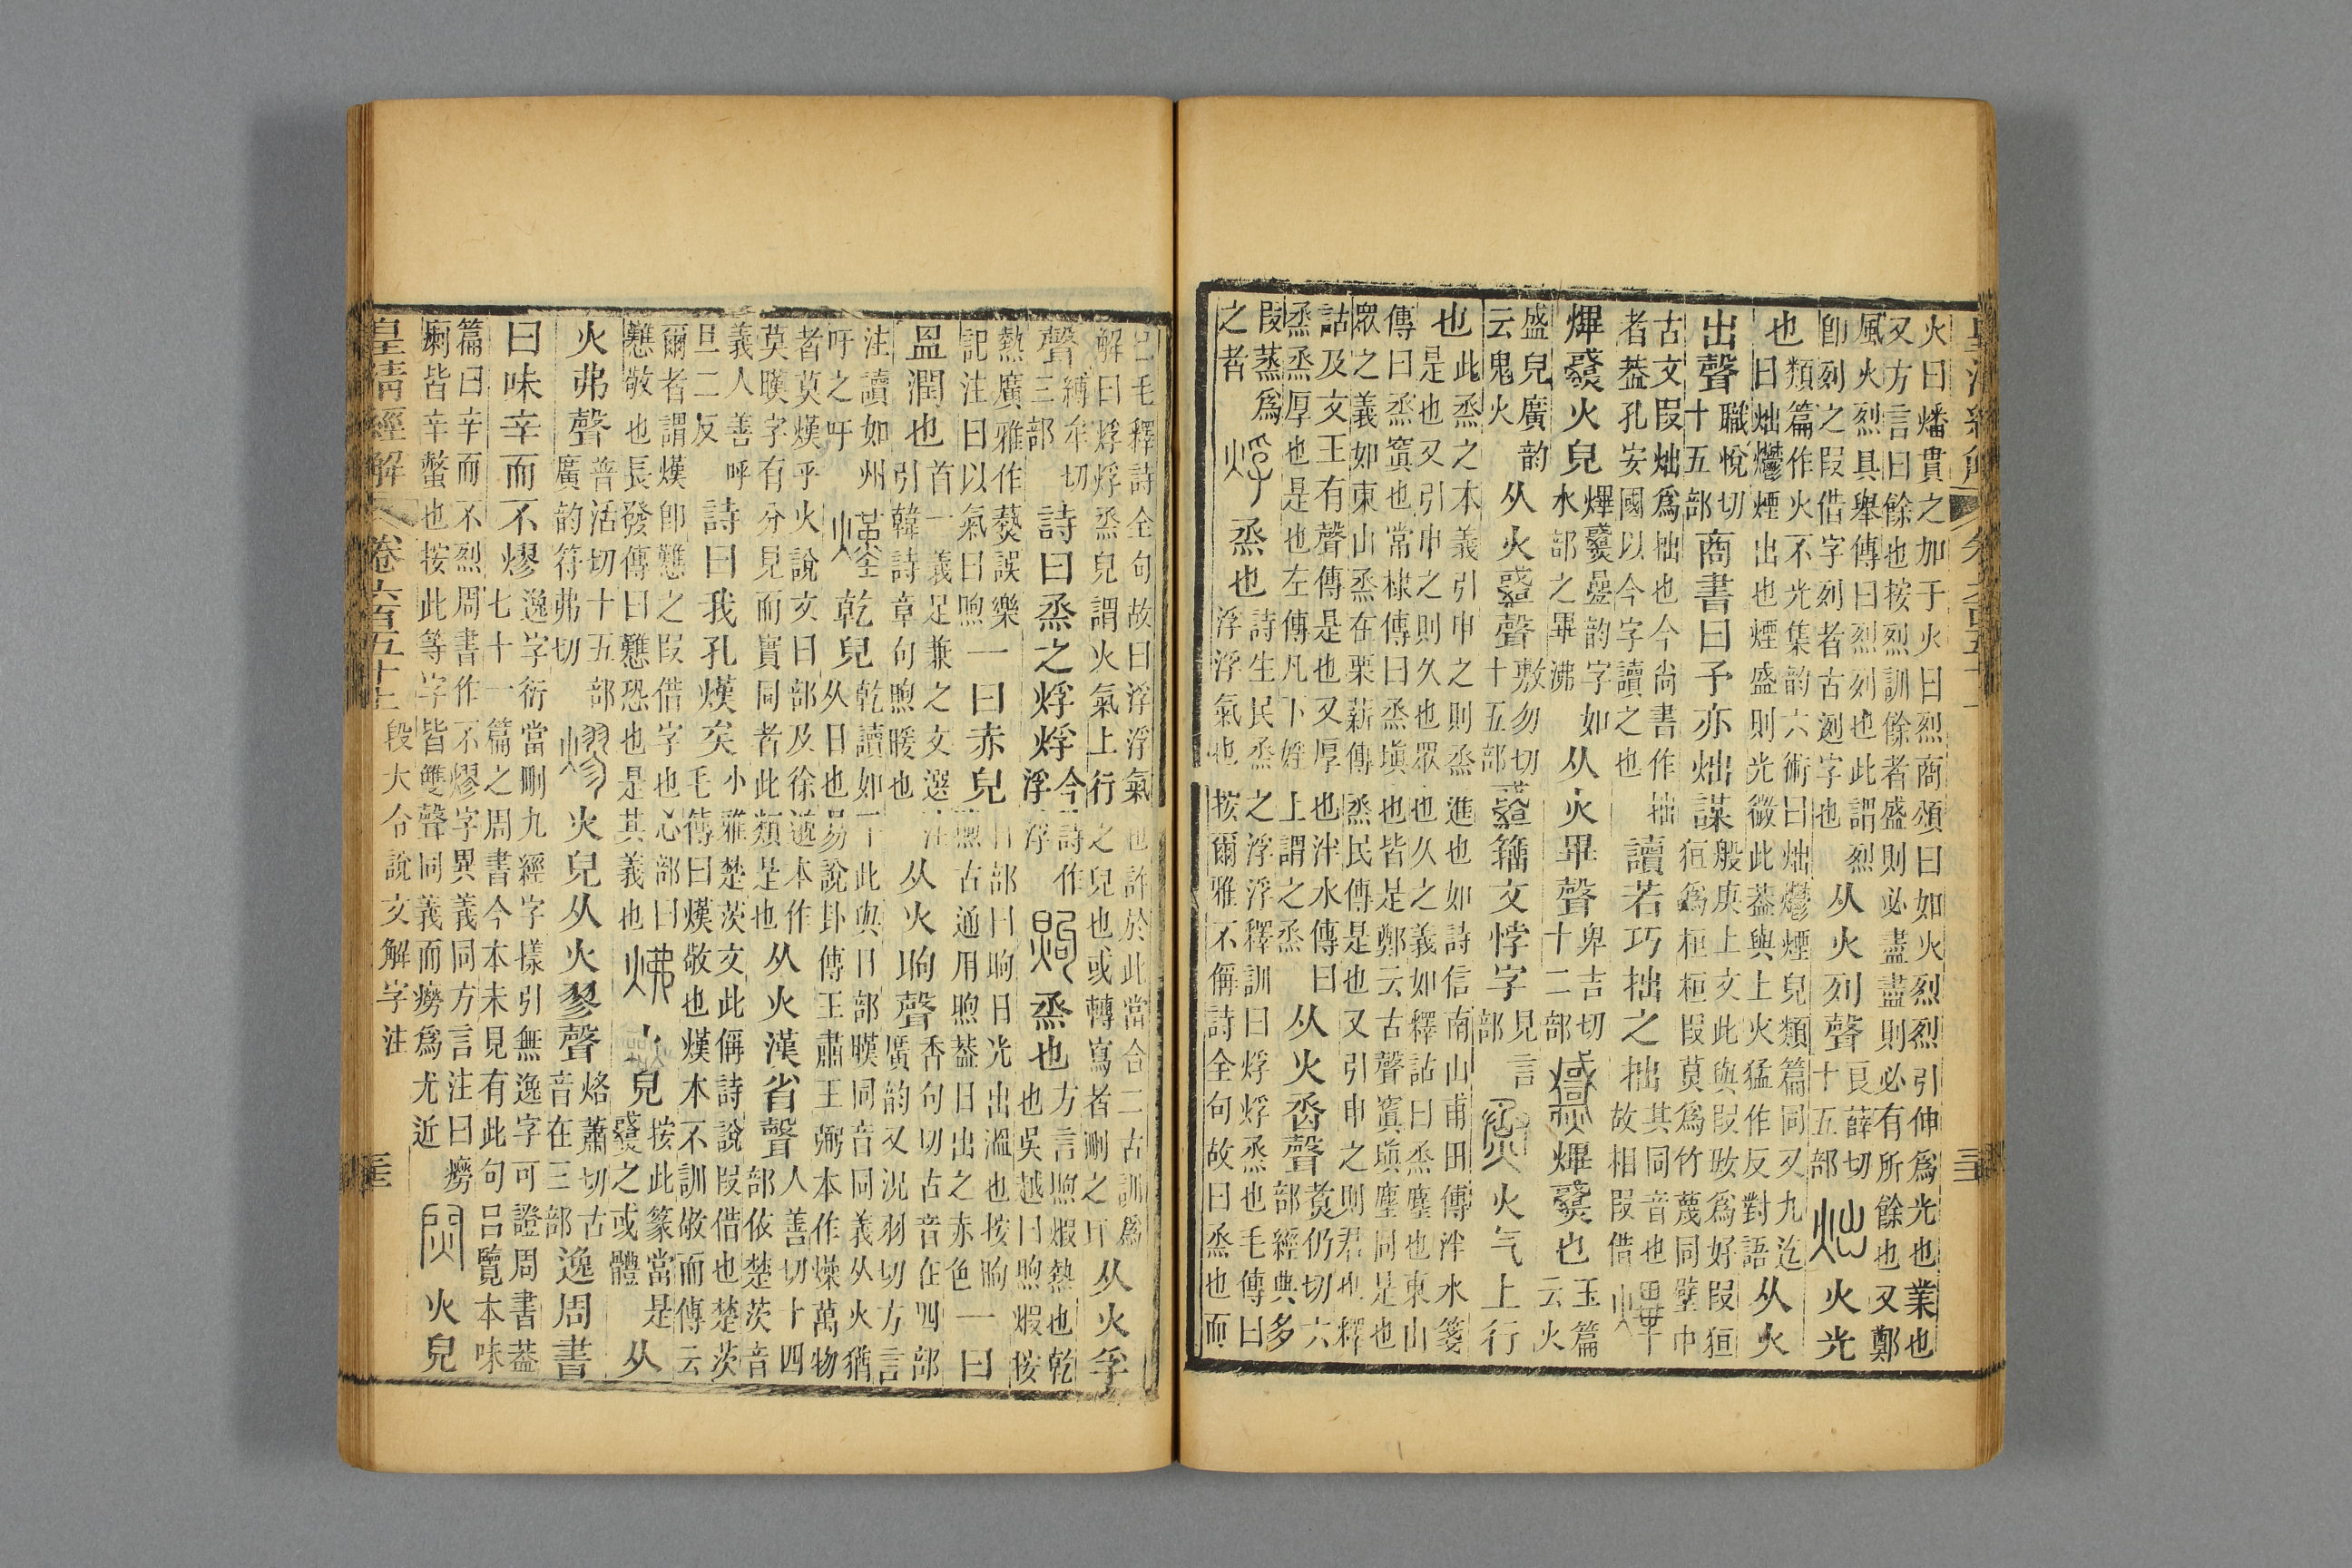 火曰燔貫之加于火曰烈商頌曰如火烈烈引伸爲光也業也
又方言曰餘也按烈訓餘者盛則必盡盡則必有所餘也又鄭
風火烈具舉傳曰烈列也此謂烈
即列之叚借字列者古迾字也
从火列聲
良薛切
十五部
炪
火光
也
類篇作火不光集韵六術曰炪爩煙皃類篇同又九迄
曰炪爩煙出也煙盛則光微此葢與上火猛作反對語
从火
出聲
職悅切
十五部
商書曰予亦炪謀
般庚上文此與叚𡚽爲好叚狟
狟爲桓桓叚莫爲竹蔑同壁中
古文叚炪爲拙也今尚書作拙
者葢孔安國以今字讀之也
讀若巧拙之拙
其同音也
故相叚借
熚
熚㷸火皃
熚㷸曡韵字如
水部之滭沸
从火畢聲
卑吉切
十二部
㷸
熚㷸也
玉篇
云火
盛皃廣韵
云鬼火
从火𧥺聲
敷勿切
十五部
籒文悖字
見言
部
烝
火气上行
也
此烝之本義引申之則烝進也如詩信南山甫田傳泮水箋
是也又引申之則久也眾也久之義如釋詁曰烝塵也東山
傳曰烝窴也常棣傳曰烝塡也皆是鄭云古聲窴塡塵同是也
眾之義如東山烝在栗薪傳烝民傳是也又引申之則君也釋
詁及文王有聲傳是也又厚也泮水傳曰
烝烝厚也是也左傳凡下婬上謂之烝
从火丞聲
煑仍切六
部經典多
叚蒸爲
之者
烰
烝也
詩生民烝之浮浮釋訓曰烰烰烝也毛傳曰
浮浮氣也按爾雅不偁詩全句故曰烝也而
已毛釋詩全句故曰浮浮氣也許於此當合二古訓爲
解曰烰烰烝皃謂火氣上行之皃也或轉寫者刪之耳
从火孚
聲
縛牟切
三部
詩曰烝之烰烰
今詩作
浮浮
煦
烝也
方言煦煆熱也乾
也吳越曰煦煆按
熱廣雅作爇誤樂
記注曰以氣曰煦
一曰赤皃
日部曰昫日光出溫也按昫
煦古通用煦葢日出之赤色
一曰
𥁕潤也
首一義足兼之文選注
引韓詩章句煦暖也
从火昫聲
香句切古音在四部
廣韵又況羽切方言
注讀如州
吁之吁
熯
乾皃
乾讀如干此與日部暵同音同義从火猶
从日也易說卦傳王肅王弼本作燥萬物
者莫熯乎火說文日部及徐邈本作
莫暵字有分見而實同者此類是也
从火漢省聲
人善切十四
部依楚茨音
義人善呼
旦二反
詩曰我孔熯矣
小雅楚茨文此偁詩說叚借也楚茨
毛傳曰熯敬也熯本不訓敬而傳云
爾者謂熯即戁之叚借字也心部曰
戁敬也長發傳曰戁恐也是其義也
炥
火皃
按此篆當是
㷸之或體
从
火弗聲
普活切十五部
廣韵符弗切
熮
火皃从火翏聲
烙蕭切古
音在三部
逸周書
曰味辛而不熮
逸字衍當刪九經字㨾引無逸字可證周書葢
七十一篇之周書今本未見有此句呂覽本味
篇曰辛而不烈周書作不熮字異義同方言注曰癆
瘌皆辛螫也按此等字皆雙聲同義而癆爲尤近
閵
火皃
皇清經解
卷六百五十
段大令說文解字注